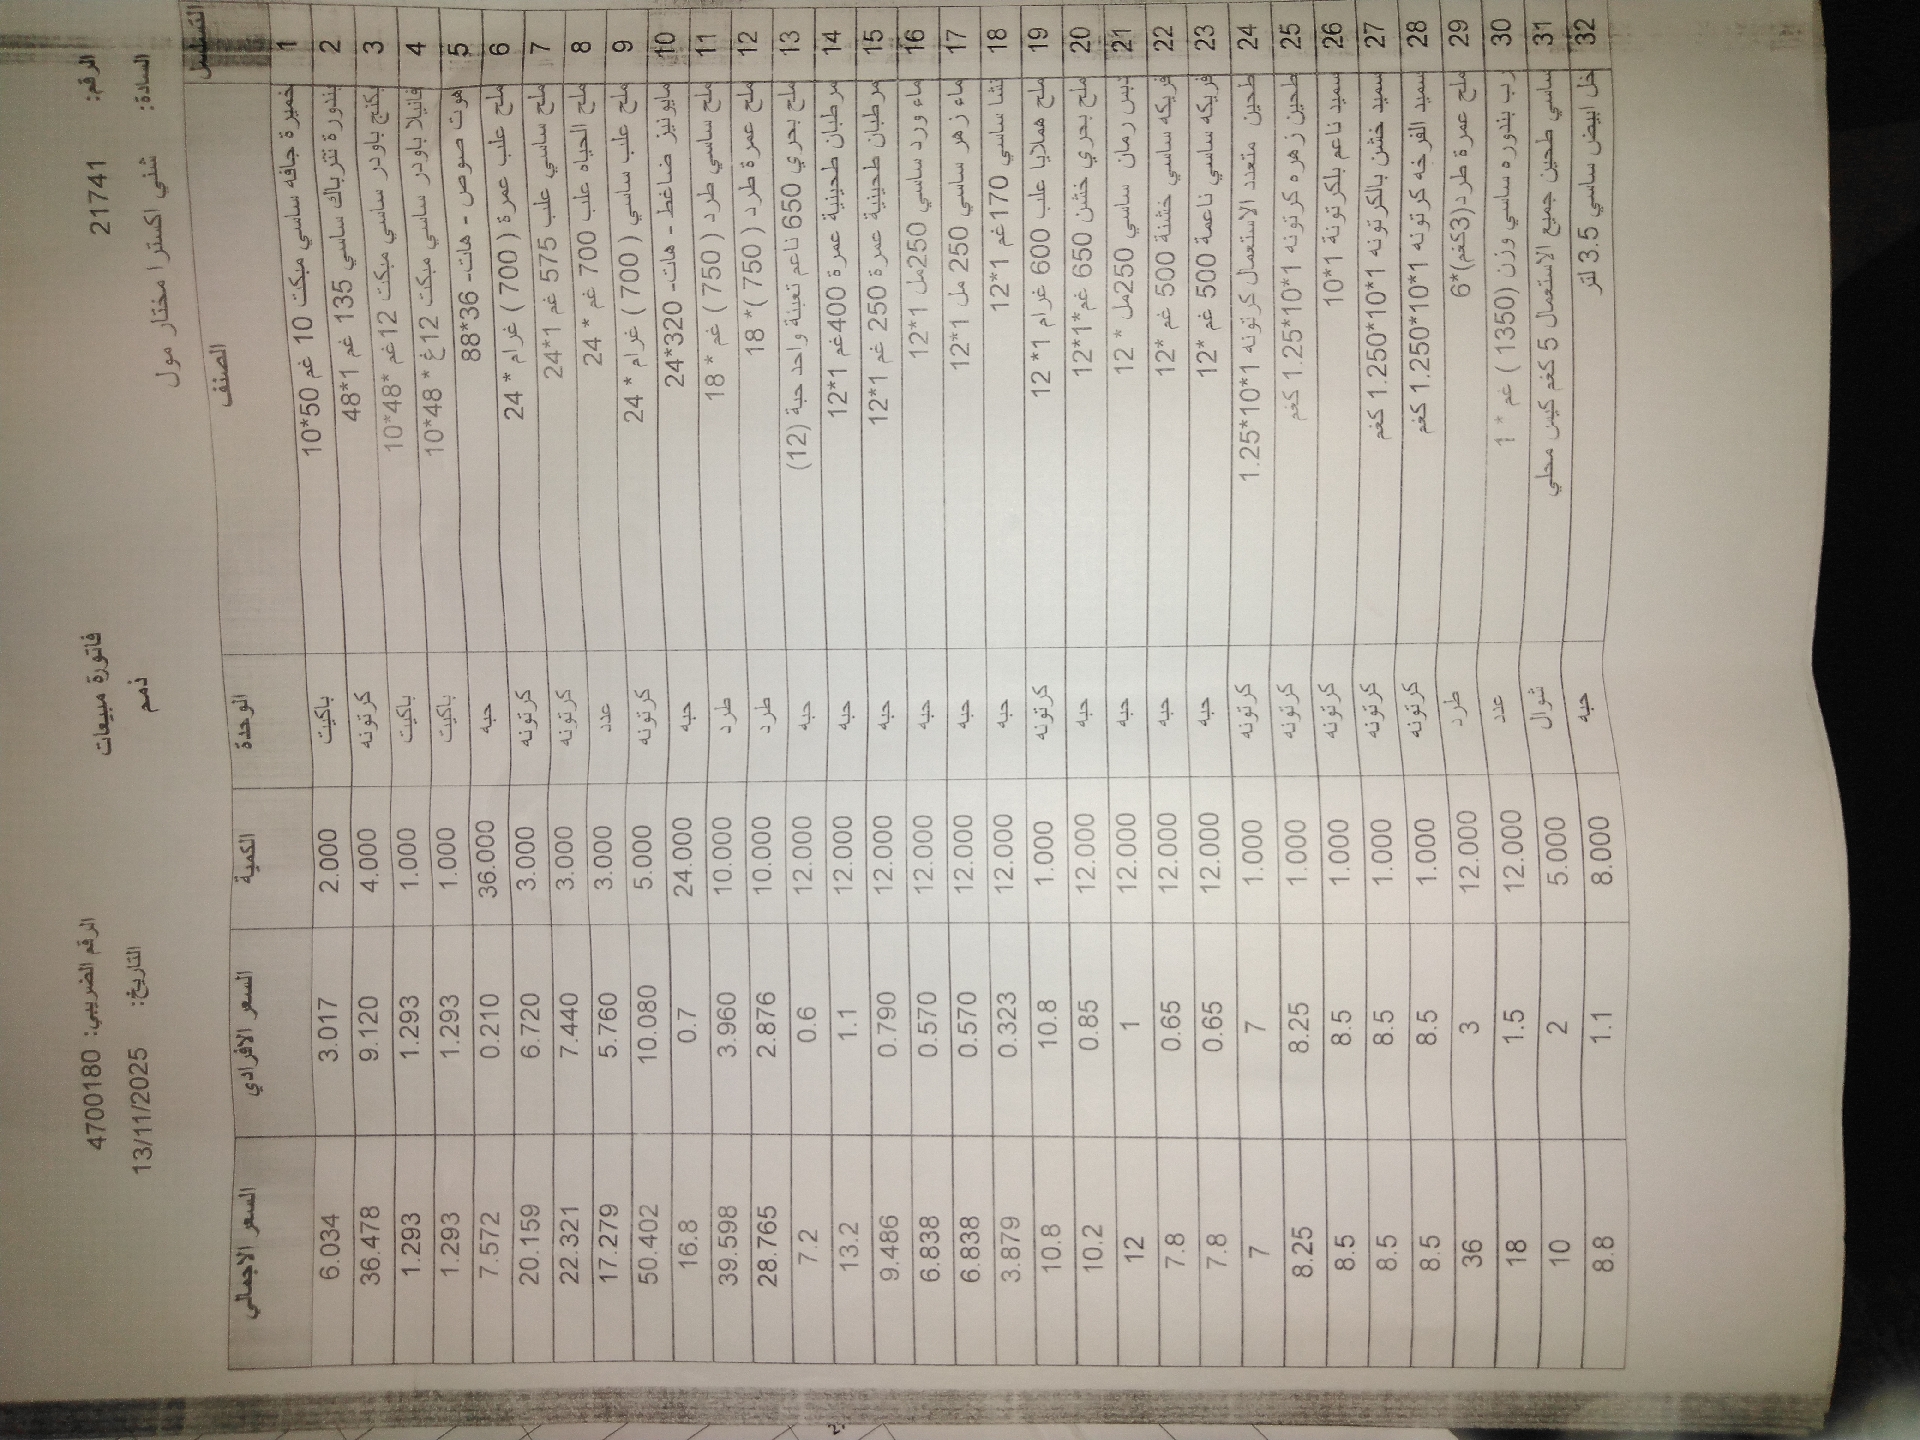 الرقم: 21741 فاتورة مبيعات الرقم الضريبي: 4700180
السادة: شني اكسترا مختار مول ذمم التاريخ: 13/11/2025
التسلسل الصنف الوحدة الكمية السعر الافرادي السعر الاجمالي
1 خميرة جافه ساسي مبكت 10 غم 50*10 باكيت 2.000 3.017 6.034
2 بندورة تترباك ساسي 135 غم 1*48 كرتونه 4.000 9.120 36.478
3 بكنج باودر ساسي مبكت 12غم *48*10 باكيت 1.000 1.293 1.293
4 فانيلا باودر ساسي مبكت 12غ *48*10 باكيت 1.000 1.293 1.293
5 هوت صوص - هات- 36*88 حبه 36.000 0.210 7.572
6 ملح علب عمرة ( 700 ) غرام * 24 كرتونه 3.000 6.720 20.159
7 ملح ساسي علب 575 غم 1*24 كرتونه 3.000 7.440 22.321
8 ملح الحياه علب 700 غم * 24 عدد 3.000 5.760 17.279
9 ملح علب ساسي ( 700 ) غرام * 24 كرتونه 5.000 10.080 50.402
10 مايونيز ضاغط - هات- 320*24 حبه 24.000 0.7 16.8
11 ملح ساسي طرد ( 750 ) غم * 18 طرد 10.000 3.960 39.598
12 ملح عمرة طرد ( 750 )* 18 طرد 10.000 2.876 28.765
13 ملح بحري 650 ناعم تعبئة واحد حبة (12) حبه 12.000 0.6 7.2
14 مرطبان طحينية عمرة 400غم 1*12 حبه 12.000 1.1 13.2
15 مرطبان طحينية عمرة 250 غم 1*12 حبه 12.000 0.790 9.486
16 ماء ورد ساسي 250مل 1*12 حبه 12.000 0.570 6.838
17 ماء زهر ساسي 250 مل 1*12 حبه 12.000 0.570 6.838
18 نشا ساسي 170غم 1*12 حبه 12.000 0.323 3.879
19 ملح هملايا علب 600 غرام 1* 12 كرتونه 1.000 10.8 10.8
20 ملح بحري خشن 650 غم*1*12 حبه 12.000 0.85 10.2
21 دبس رمان ساسي 250مل * 12 حبه 12.000 1 12
22 فريكه ساسي خشنة 500 غم *12 حبه 12.000 0.65 7.8
23 فريكه ساسي ناعمة 500 غم *12 حبه 12.000 0.65 7.8
24 طحين متعدد الاستعمال كرتونه 1*10*1.25 كرتونه 1.000 7 7
25 طحين زهره كرتونه 1*10*1.25 كغم كرتونه 1.000 8.25 8.25
26 سميد ناعم بلكرتونة 1*10 كرتونه 1.000 8.5 8.5
27 سميد خشن بالكرتونه 1*10*1.250 كغم كرتونه 1.000 8.5 8.5
28 سميد الفرخه كرتونه 1*10*1.250 كغم كرتونه 1.000 8.5 8.5
29 ملح عمرة طرد(3كغم)*6 طرد 12.000 3 36
30 رب بندوره ساسي وزن (1350 ) غم * 1 عدد 12.000 1.5 18
31 ساسي طحين جميع الاستعمال 5 كغم كيس محلي شوال 5.000 2 10
32 خل ابيض ساسي 3.5 لتر حبه 8.000 1.1 8.8